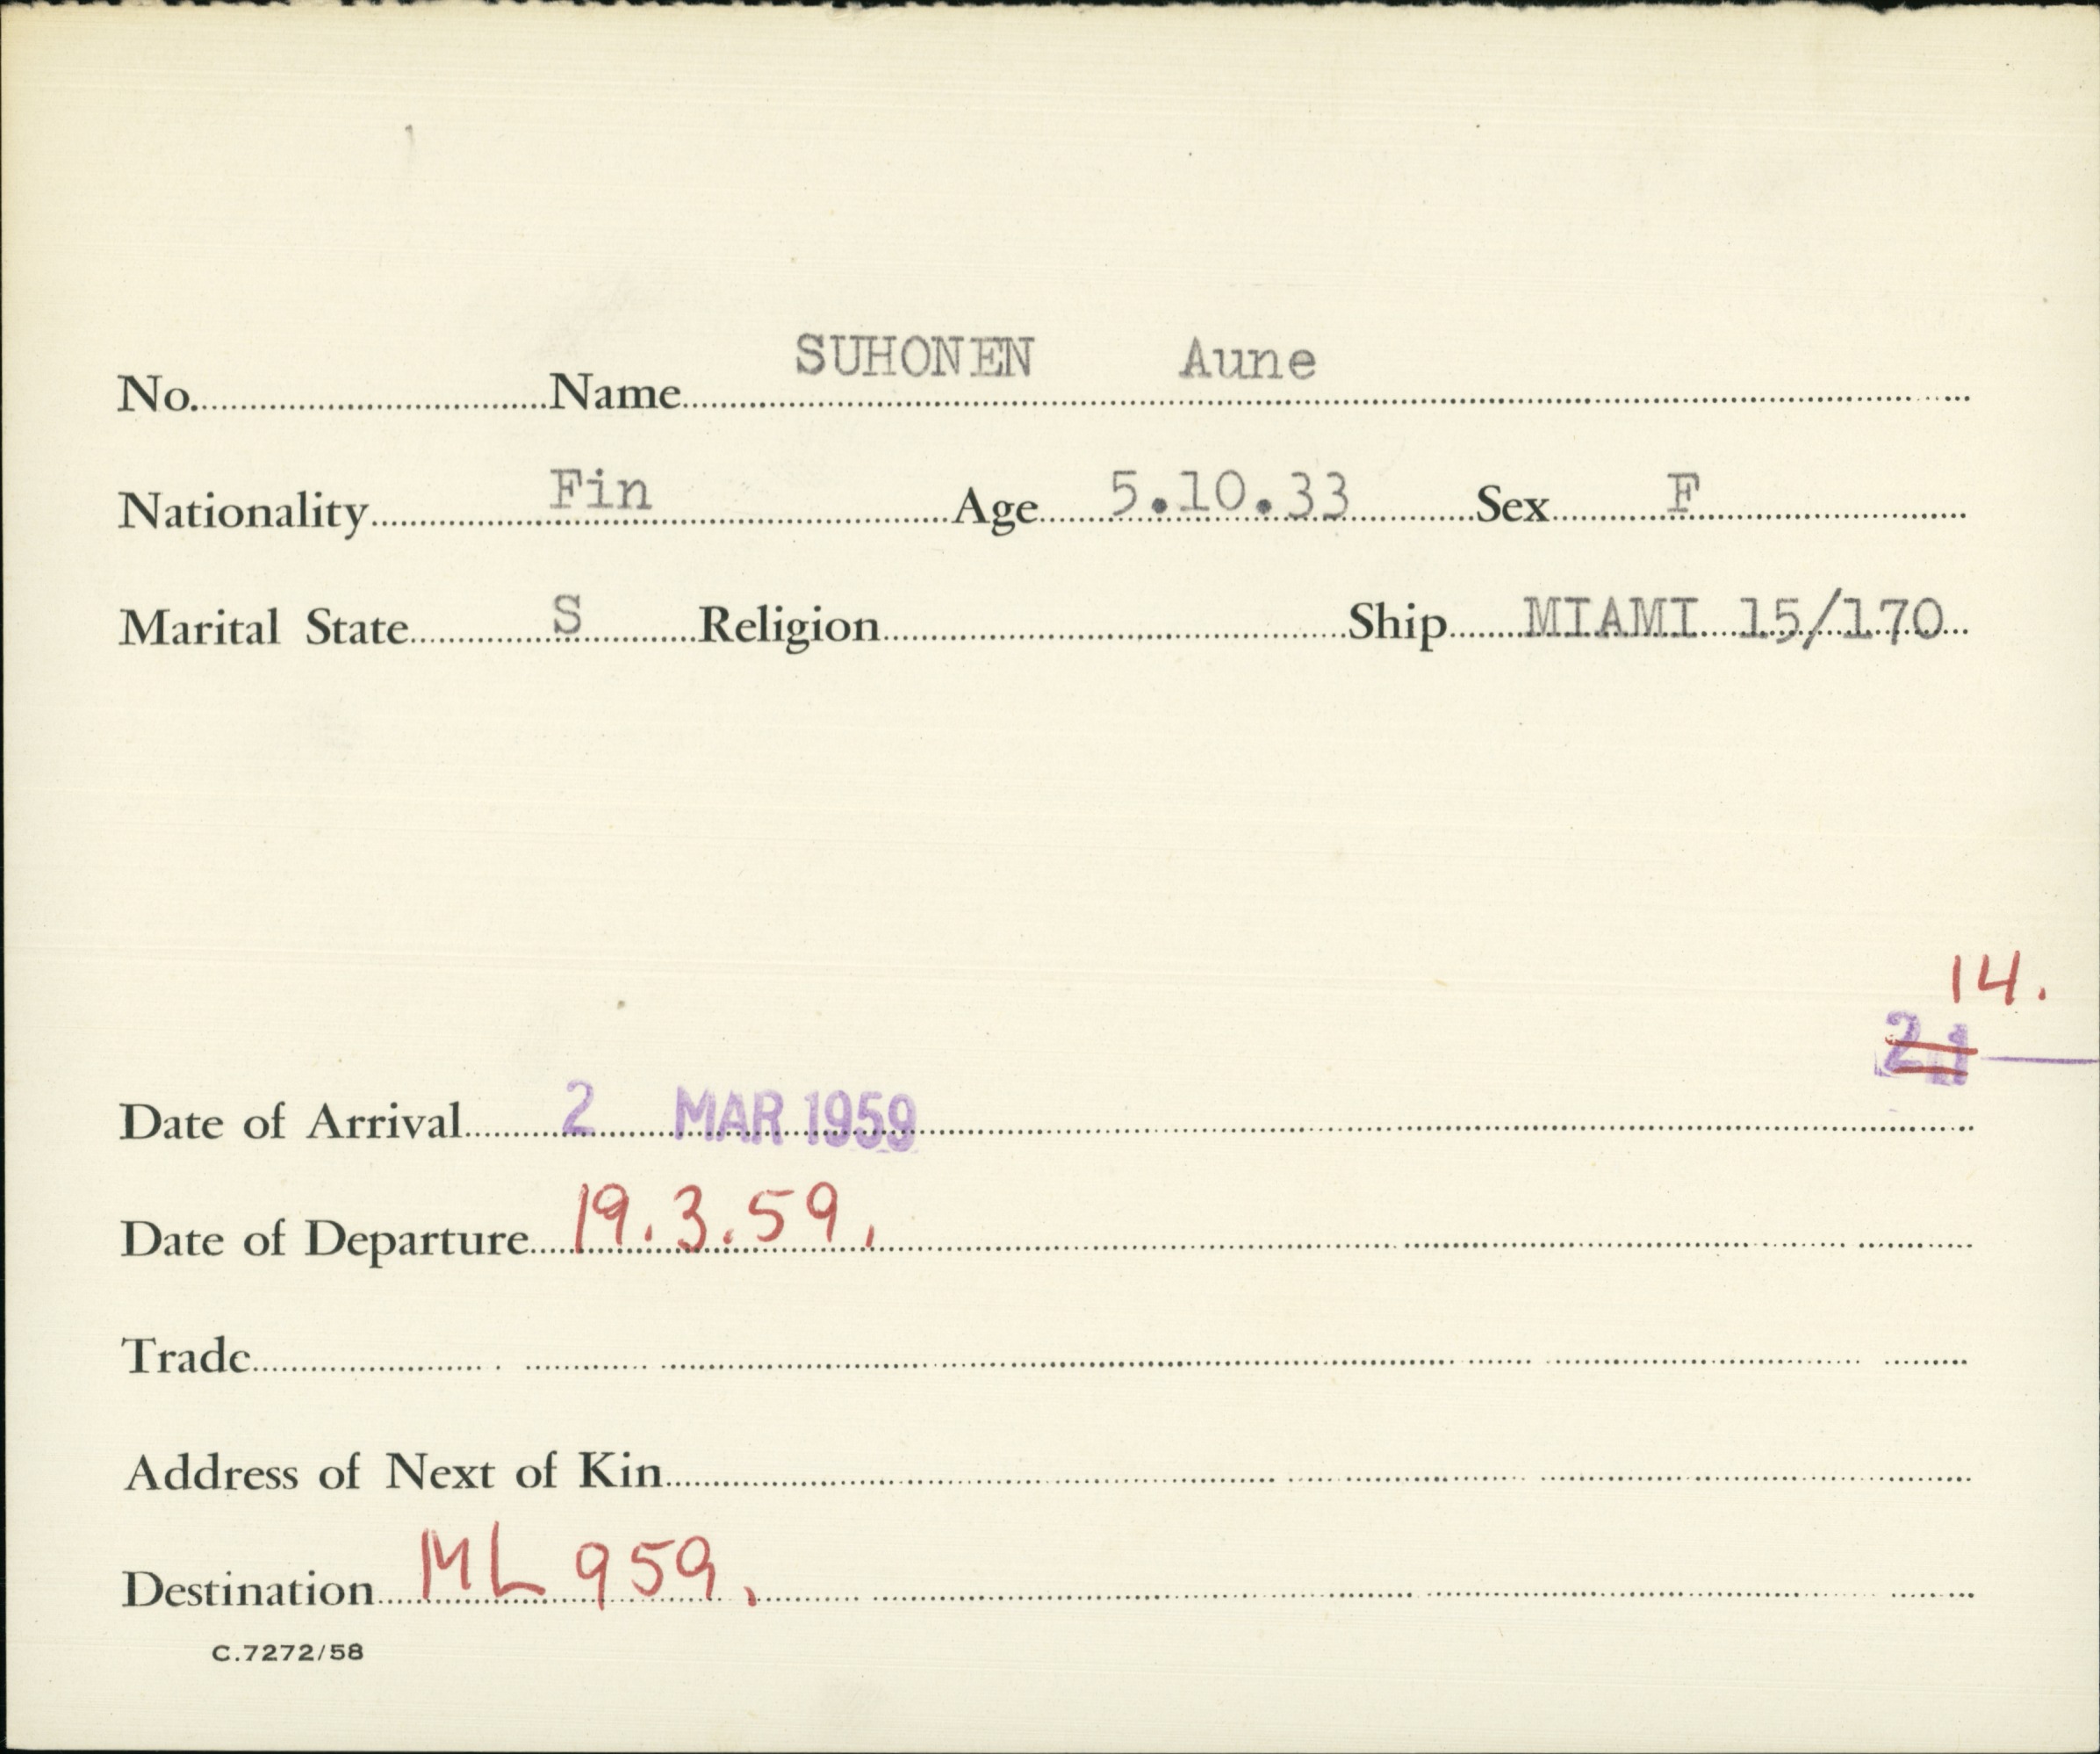 SUHONEN Aune
No. Name
Nationality Fin Age 5.10.33 Sex F
Marital State S Religion Ship MIAMI 15/170
14.
21
Date of Arrival 2 MAR 1959
Date of Departure 19.3.59.
Trade
Address of Next of Kin
Destination ML 959.
C.7272/58